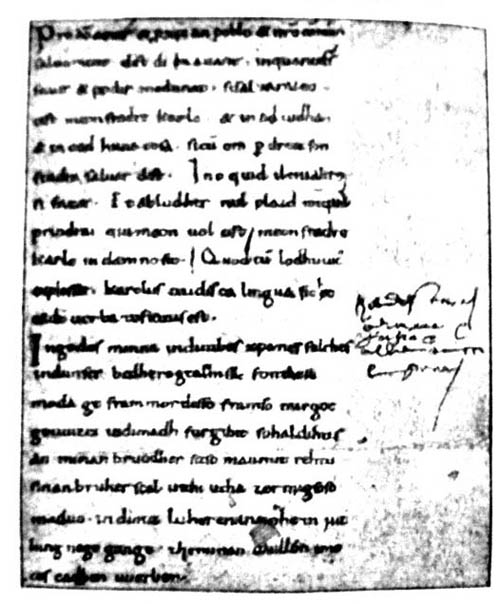 Pro dõ amur & p xpian poblo & nrõ cõmun
saluament. dist di in auant. inquantds
sauir & podir medunat. sisaluaraieo
cist meon fradre karlo. & in adiudha
& in cad huna cosa. sicũ om p dreit son
fradra saluar dist. Ino quid il mialtre
si fazet. Et abludher nul plaid nũquã
prindrai qui meon uol cist meon fradre
karle in damno sit. Quod cũ lodhuuic
explesset. karolus teudisca lingua sic hec
eadẽ uerba testatus est.
In godes minna indinthes xpanes folches
indunser bedhero gealtnissi. fonthese
moda ge frammordesso framso mirgot
geuuizci indimadh furgibit sohaldihtes
an minan bruodher soso manmit rehtu
sinan bruher scal inthi utha zermigsoso
maduo. indimit luheren in noheiniut
hing nege gango. zheminan uuillon imo
ce scadhen uuerhen.